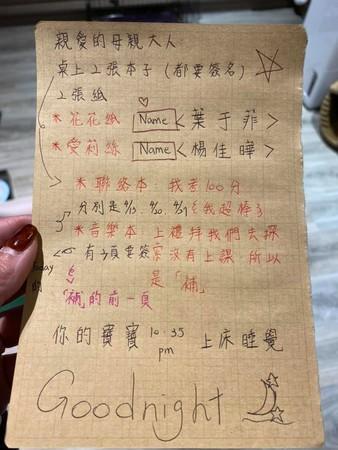 親愛的母親大人
桌上2張本子(都要簽名)
2張紙
*花花紙 Name <葉于菲>
*愛莉絲 Name <楊佳曄>
*聯絡本:我考100分
分別是9/13、9/20、9/27 我超棒
*音樂本:上禮拜我們去探
有3頁要簽 索沒有上課 所以
today 的 是「補」
「補」的前一頁
你的寶寶 10:35 pm 上床睡覺
Goodnight